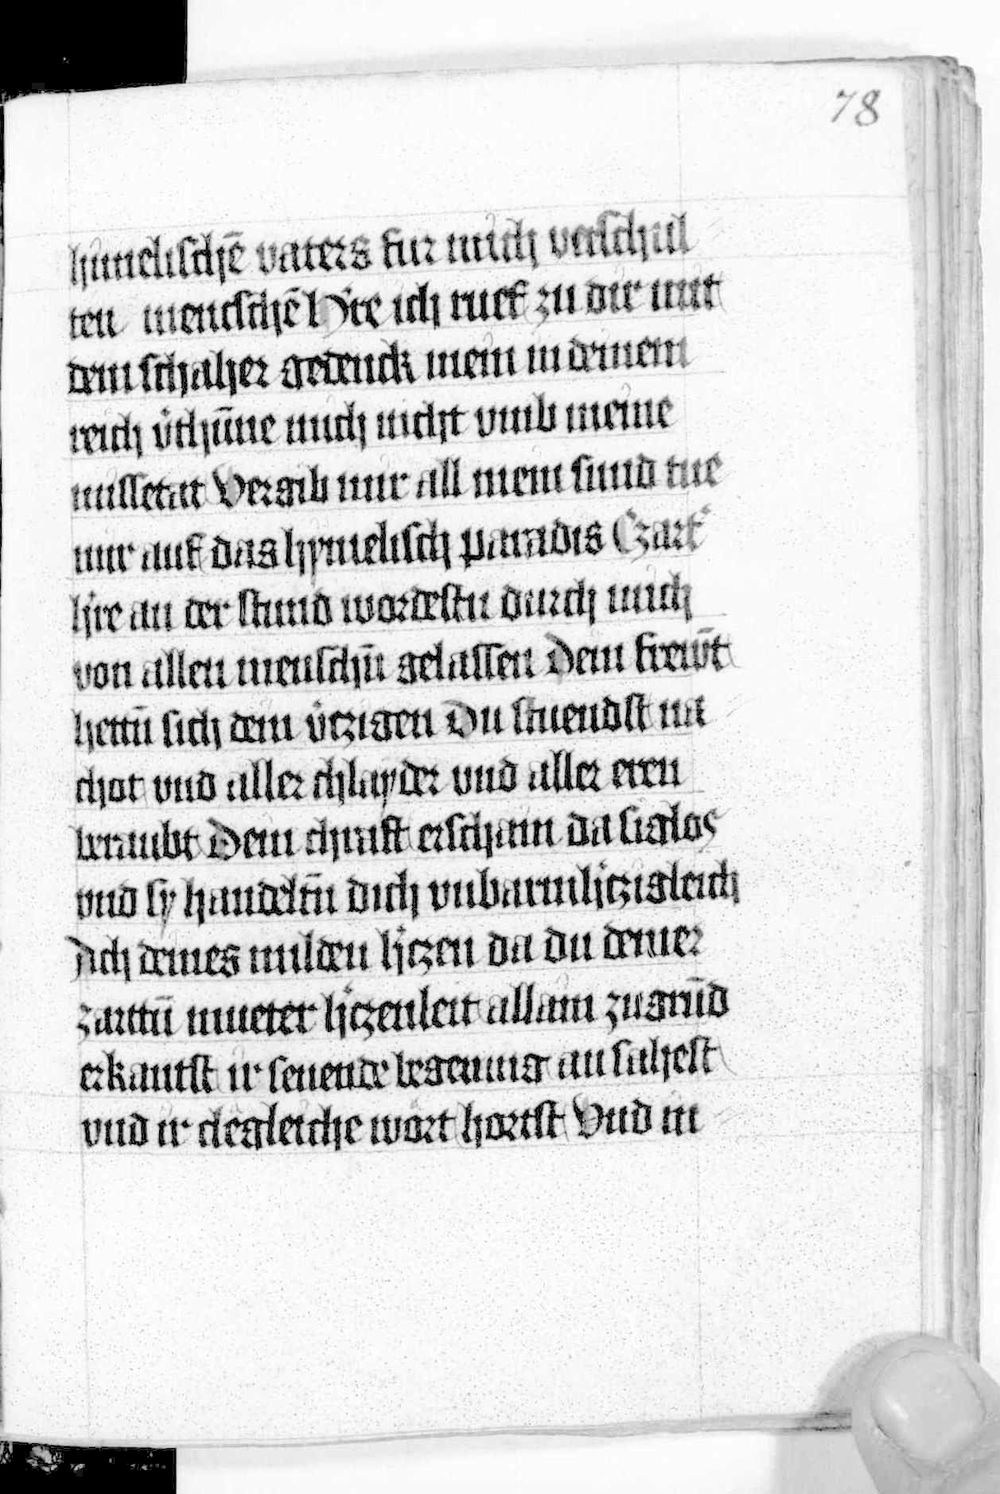 78
himelischē vaters fur mich verschul
ten menschē H're ich ruef zu dir mit
dem schaher gedenck mein in deinem
reich v'thūne mich nicht vmb meine
missetat Vergib mir all mein sund tue
mir auf das hymelisch paradis Czart'
h're an der stund wordestu durch mich
von allen menschn̄ gelassen Dein frewn̄t
hettn̄ sich dein v'czigen Du stuendst na
chot vnd aller chlayder vnd aller eren
beraubt Dein chraft erschain da siglos
vnd sy handeltn̄ dich vnbarmh'cziglich
Ach deines milden h'czen da du deiner
zarttn̄ mueter h'czenleit allain zugrūd
erkantst ir senende begerung an sahest
vnd ir clegleiche wort hortst Vnd in